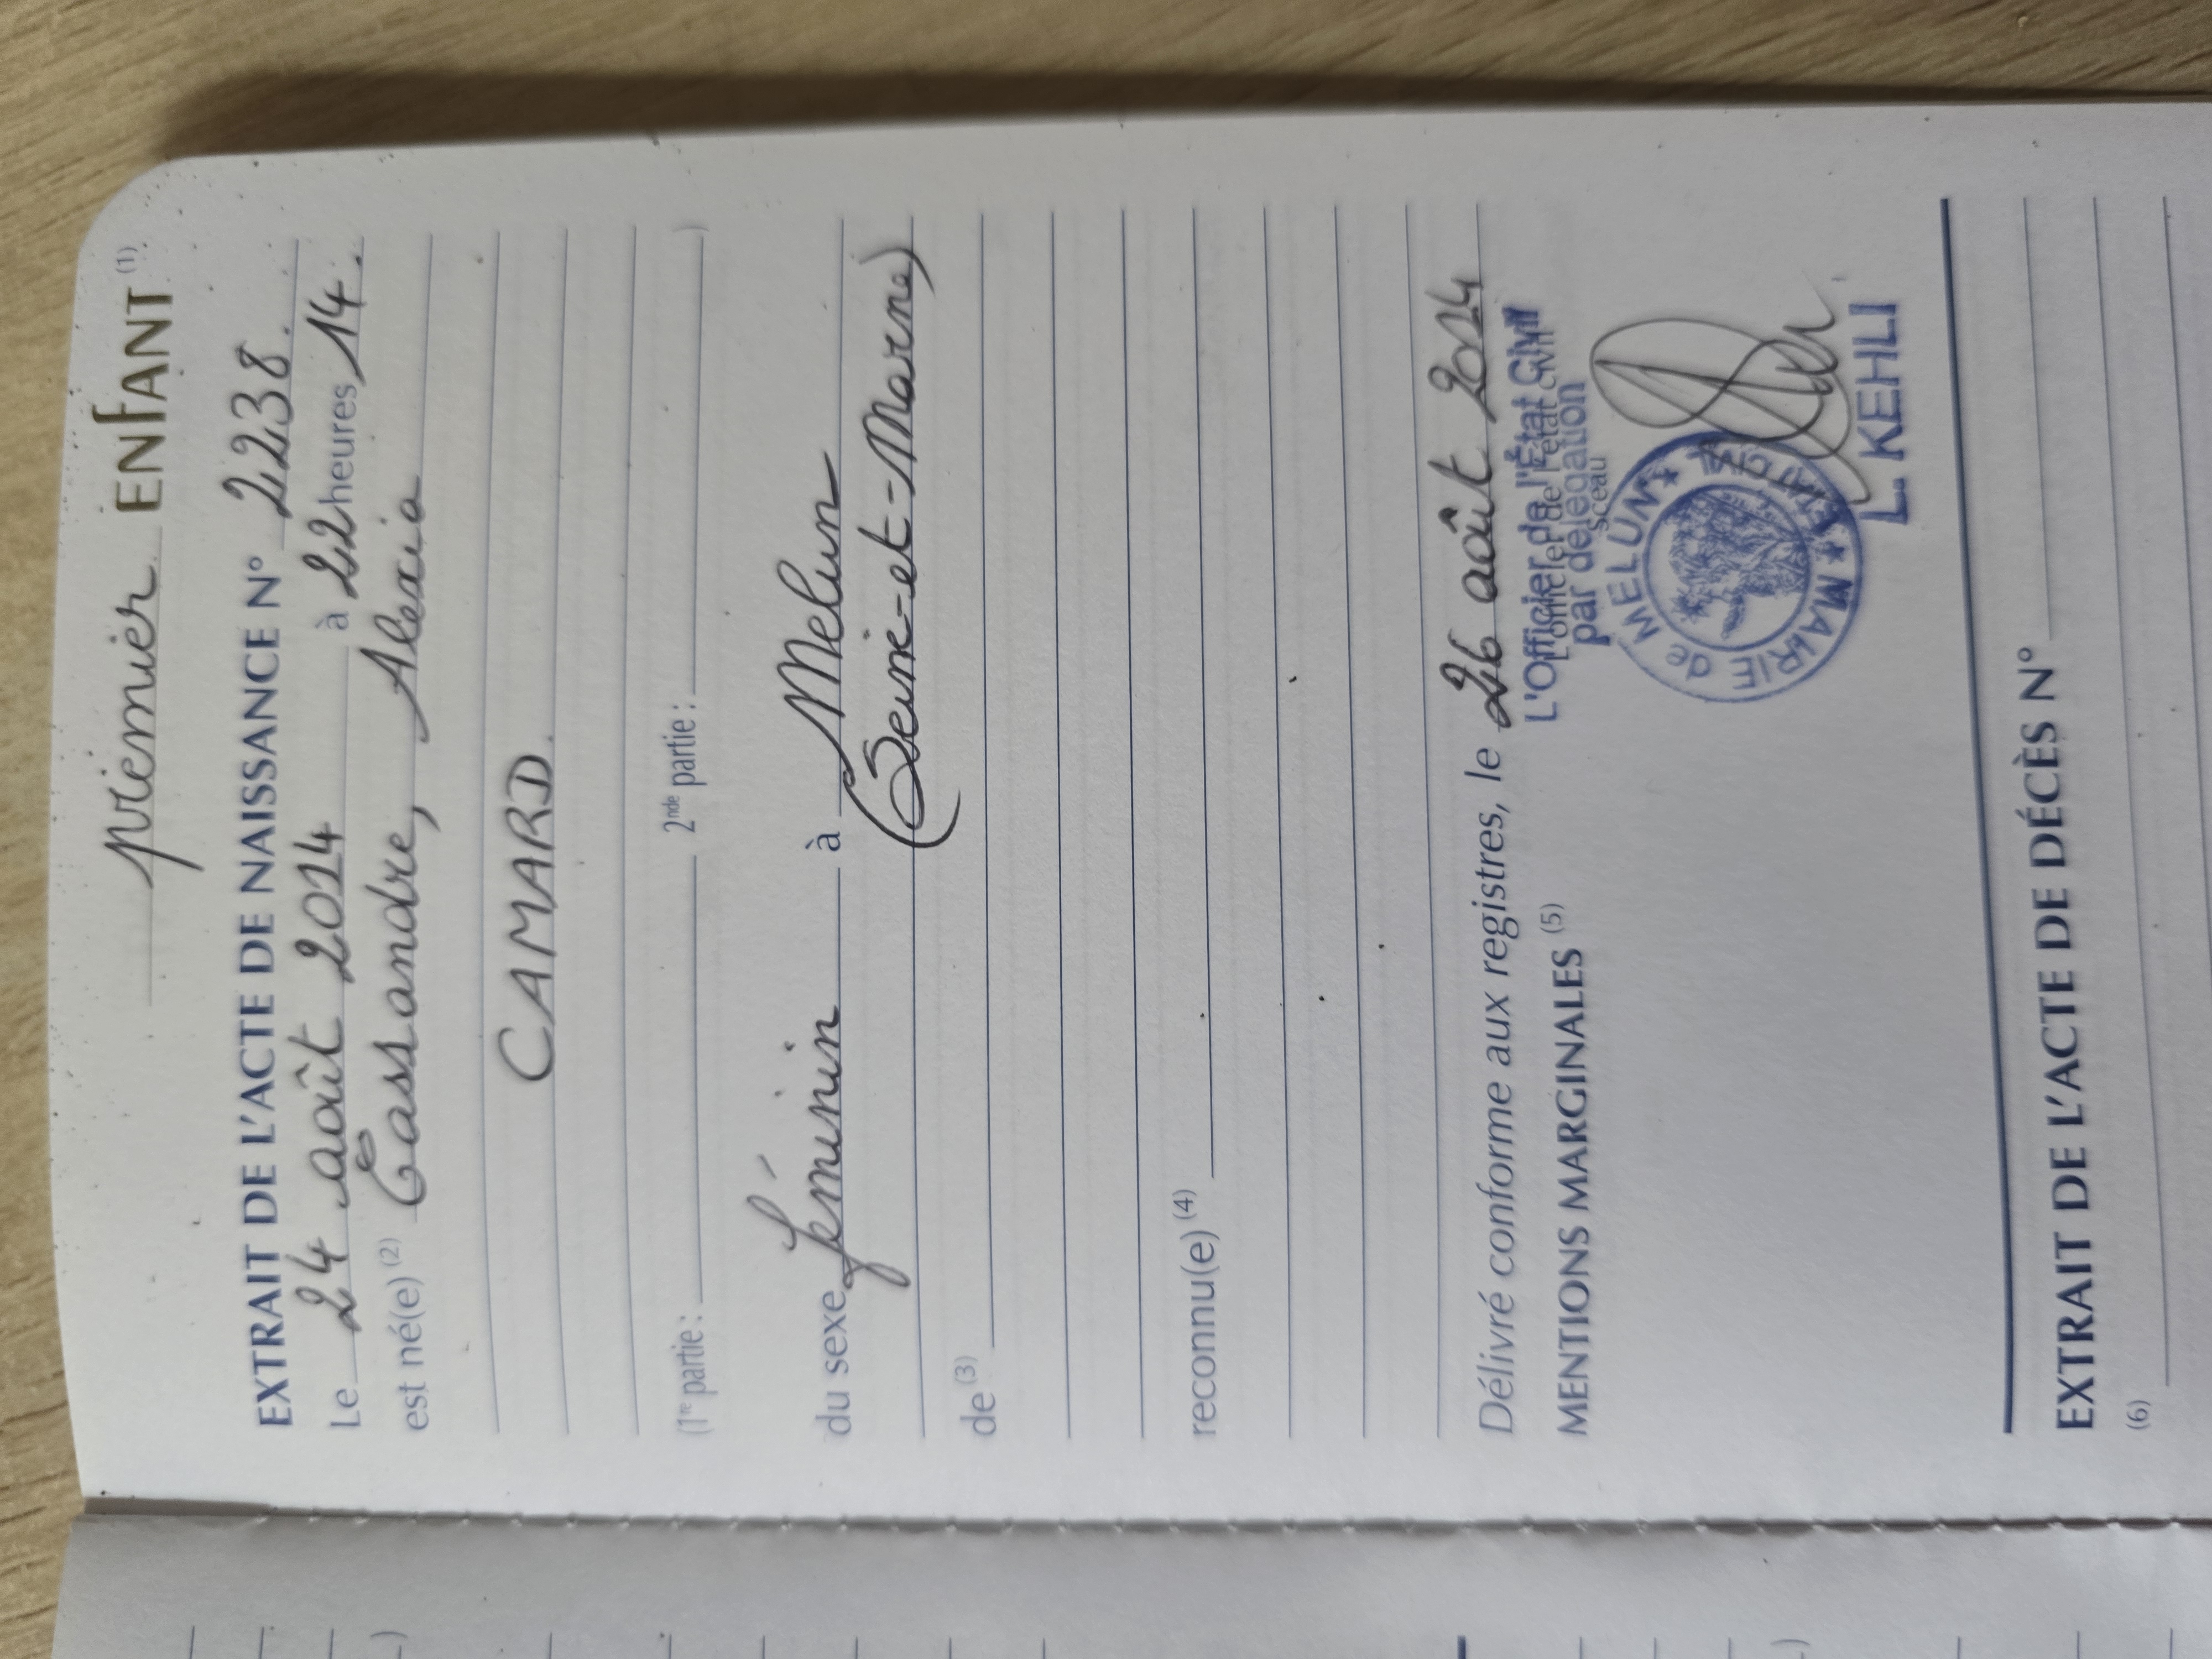 premier ENFANT (1)
EXTRAIT DE L'ACTE DE NAISSANCE N° 2238.
Le 24 août 2014 à 22 heures 14.
est né(e) (2) Cassandre, Alexia
CAMARD.
(1re partie : 2nde partie : )
du sexe féminin à Melun
(Seine-et-Marne)
de (3)
reconnu(e) (4)
Délivré conforme aux registres, le 26 août 2014
MENTIONS MARGINALES (5)
L'Officier de l'État Civil
L'officier de l'état civil
par délégation
sceau
MAIRIE de MELUN
L. KEHLI
EXTRAIT DE L'ACTE DE DÉCÈS N°
(6)